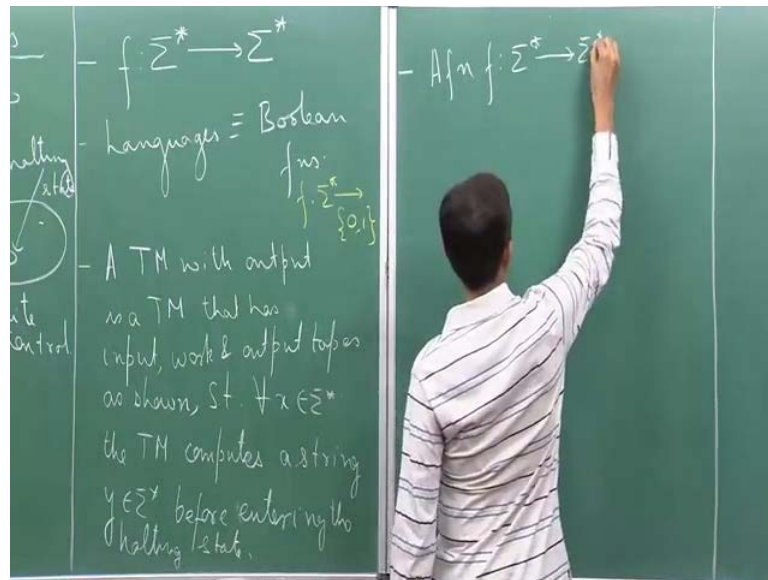 halting
state
control
- f: Σ* → Σ*
- Languages ≡ Boolean
fns.
f: Σ* →
{0,1}
- A TM with output
is a TM that has
input, work & output tapes
as shown, st. ∀ x ∈ Σ*
the TM computes a string
y ∈ Σ* before entering the
halting state.
- A fn f: Σ* → Σ*